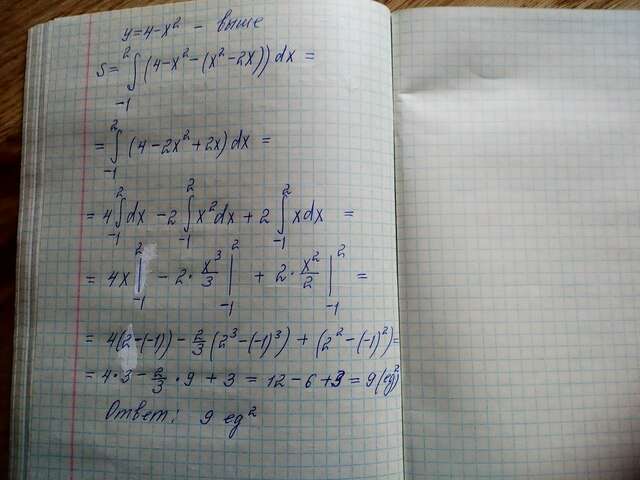 y=4-x² - выше
S = ∫₋₁² (4-x²-(x²-2x)) dx =
= ∫₋₁² (4-2x²+2x) dx =
= 4 ∫₋₁² dx - 2 ∫₋₁² x² dx + 2 ∫₋₁² x dx =
= 4x |₋₁² - 2· x³/3 |₋₁² + 2· x²/2 |₋₁² =
= 4(2-(-1)) - 2/3 (2³-(-1)³) + (2²-(-1)²) =
= 4·3 - 2/3 ·9 + 3 = 12-6+3 = 9 (eg²)
Ответ: 9 eg²